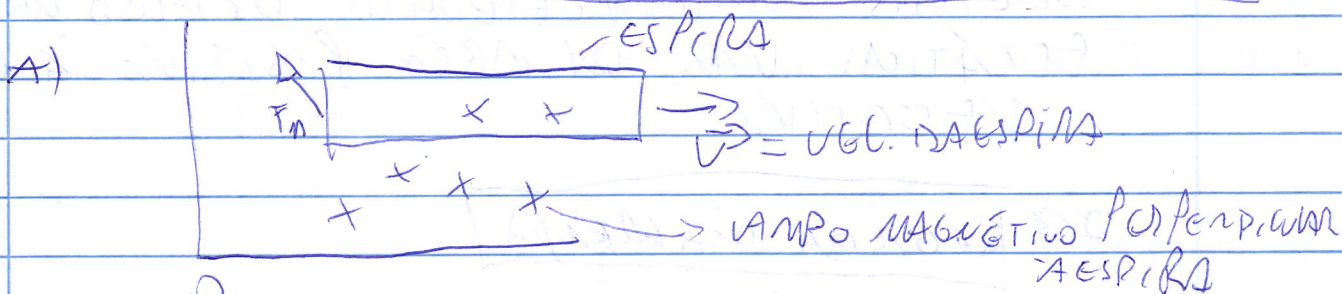 ESPIRA
A)
Fm
x x
V = VEL. DA ESPIRA
x x x x
CAMPO MAGNÉTICO PERPENDICULAR
A ESPIRA